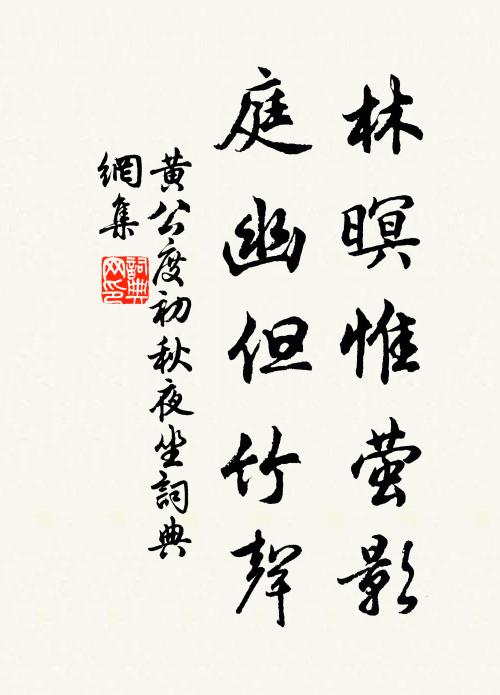 林暝惟萤影
庭幽但竹聲
黄公度初秋夜坐詞典
網集
詞典
网印